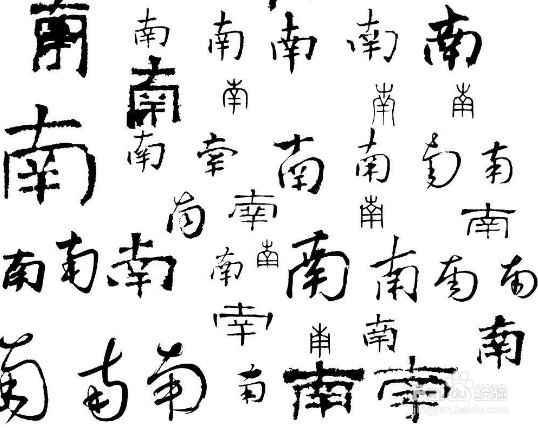 南 南 南 南 南 南
南 南 南 南
南 南 南 南 南 南 南
南 南 南 南
南 南 南 南 南 南 南 南 南
南 南 南 南
南 南 南 南 南 南
Baidu 经验
jingyan.baidu.com